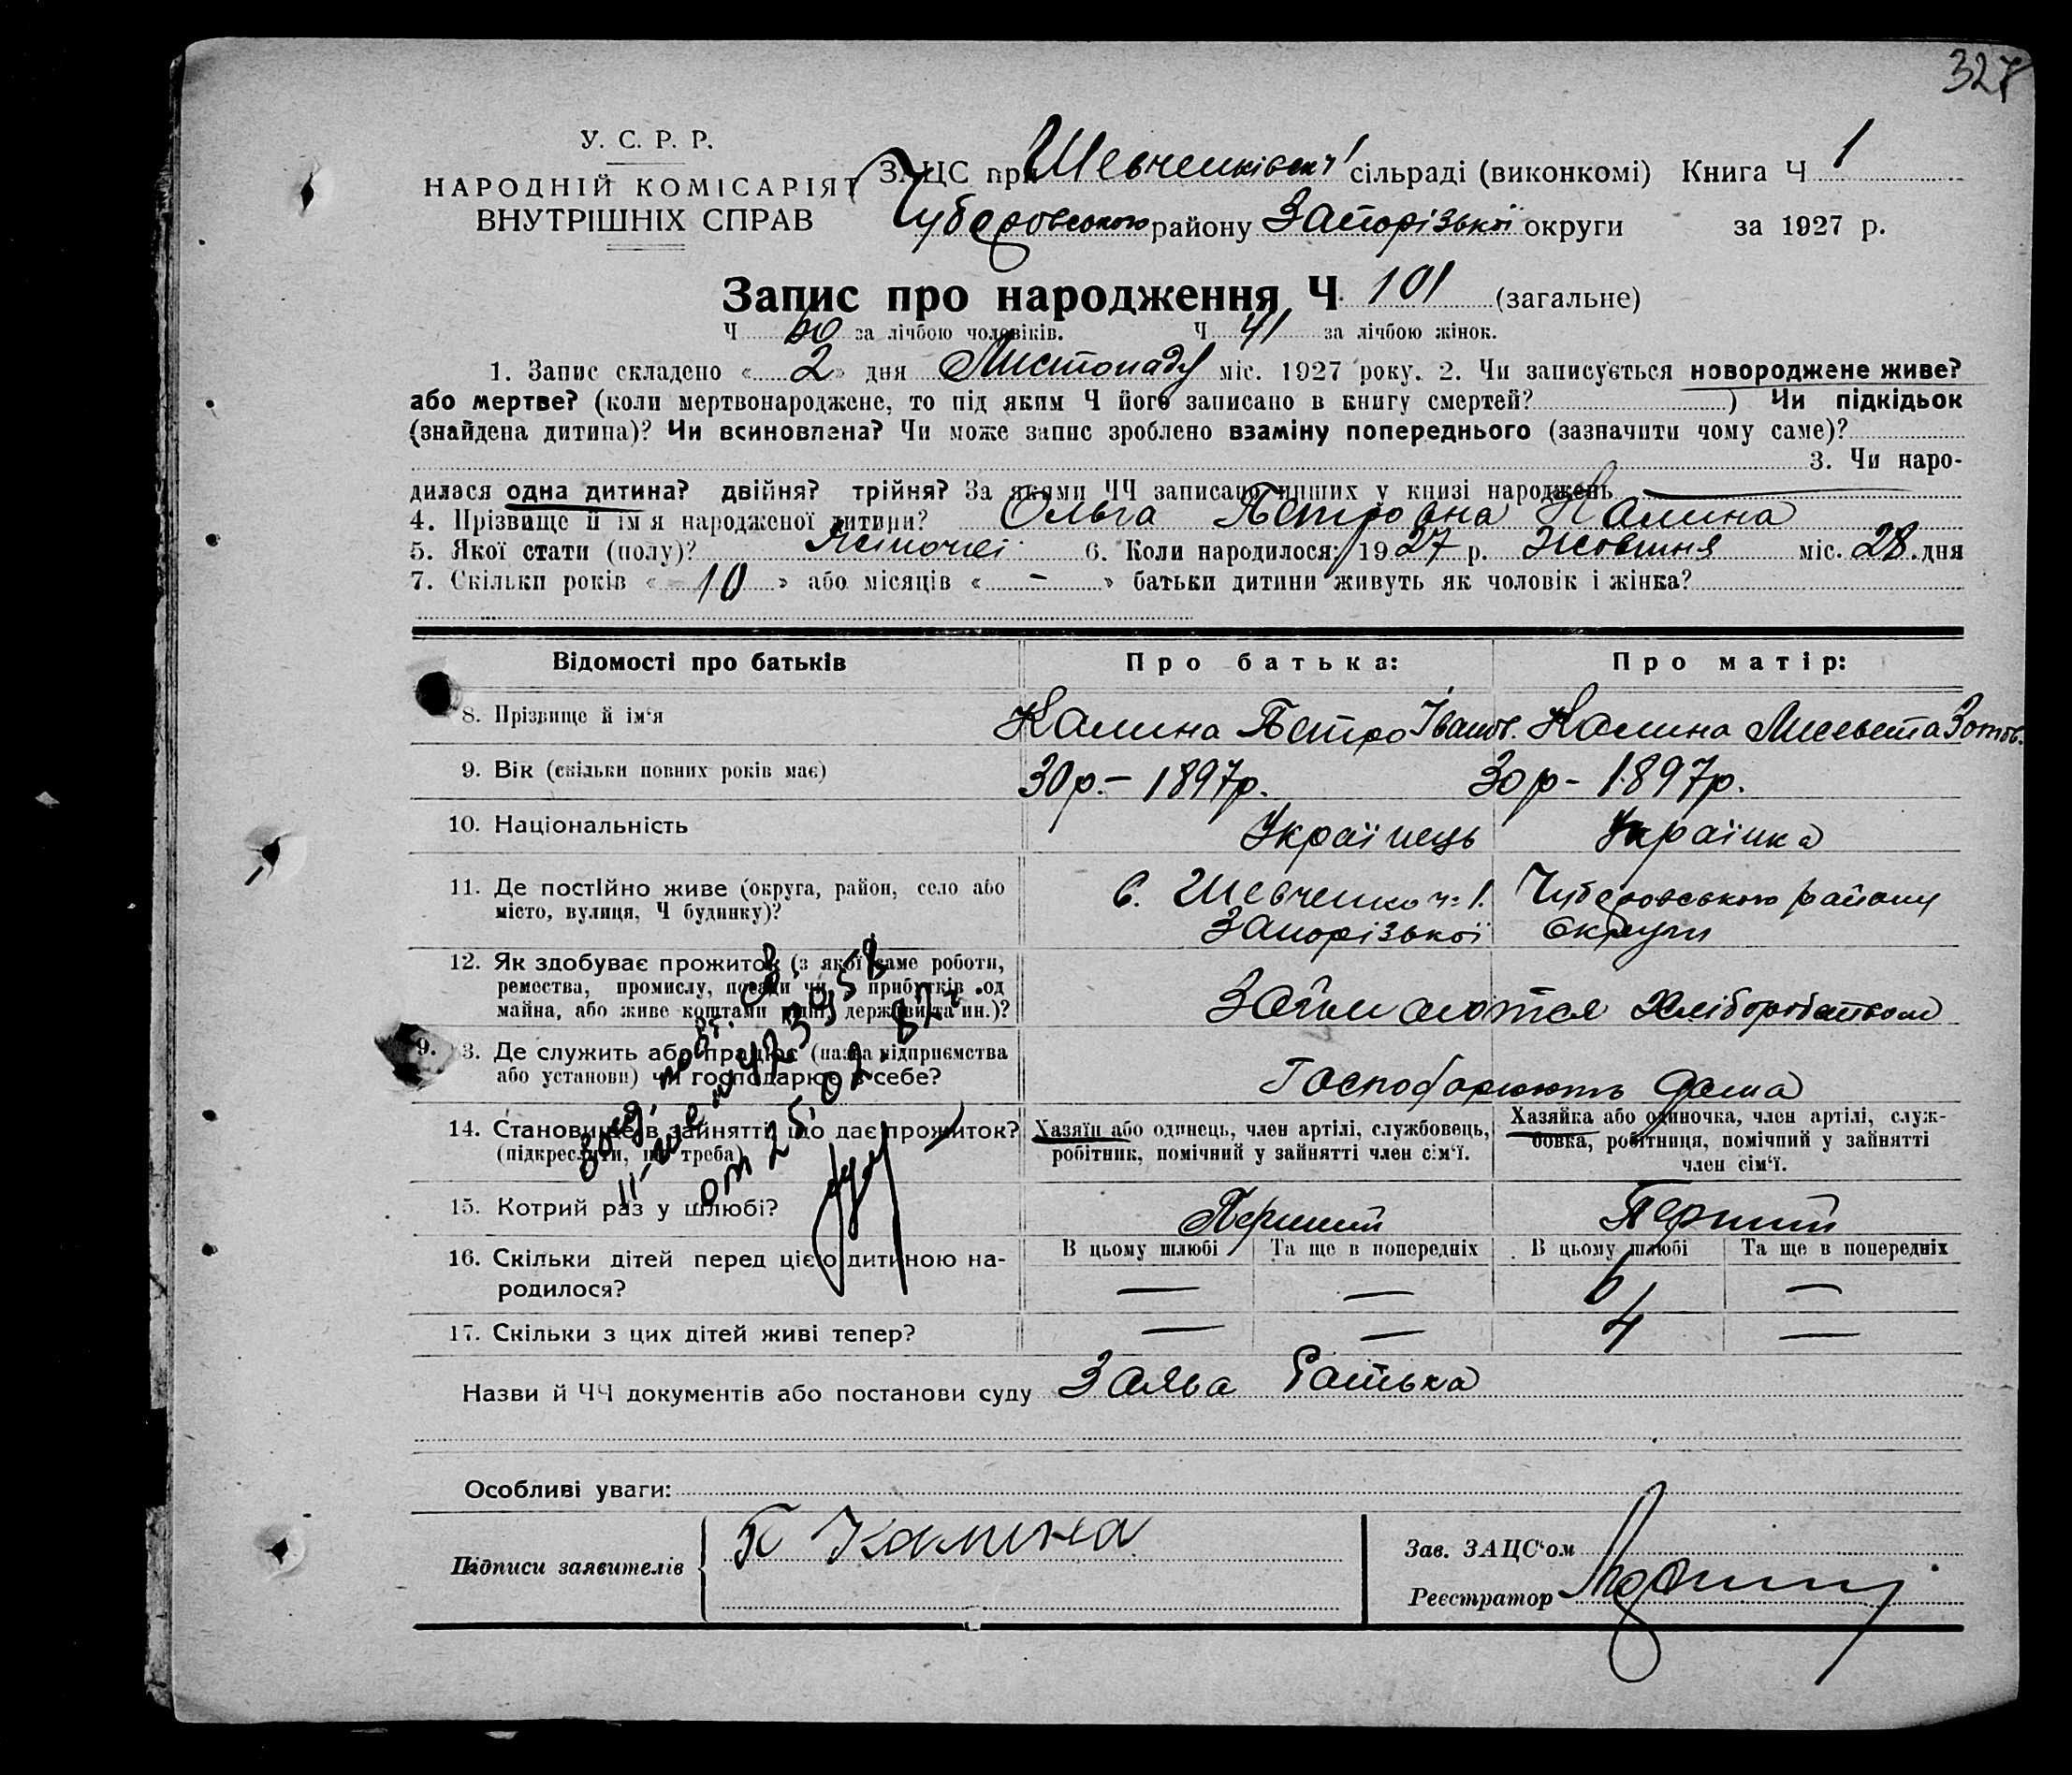 327
У. С. Р. Р.
НАРОДНІЙ КОМІСАРІЯТ
ВНУТРІШНІХ СПРАВ
ЗАЦС при Шевченківській сільраді (виконкомі) Книга Ч 1
Чубаровського району Запорізької округи за 1927 р.
Запис про народження Ч 101 (загальне)
Ч 60 за лічбою чоловіків. Ч 41 за лічбою жінок.
1. Запис складено « 2 » дня Листопаду міс. 1927 року. 2. Чи записується новороджене живе?
або мертве? (коли мертвонароджене, то під яким Ч його записано в книгу смертей? ) Чи підкідьок
(знайдена дитина)? Чи всиновлена? Чи може запис зроблено взаміну попереднього (зазначити чому саме)?
3. Чи наро-
дилася одна дитина? двійня? трійня? За якими ЧЧ записано инших у книзі народжень
4. Прізвище й ім'я народженої дитини? Ольга Петровна Калина
5. Якої стати (полу)? Жіночеї 6. Коли народилося: 1927 р. Жовтня міс. 28 дня
7. Скільки років « 10 » або місяців « – » батьки дитини живуть як чоловік і жінка?
Відомості про батьків Про батька: Про матір:
8. Прізвище й ім'я Калина Петро Іванов. Калина Лисевета Зотов.
9. Вік (скільки повних років має) 30 р. – 1897 р. 30 р – 1897 р.
10. Національність Українець Українка
11. Де постійно живе (округа, район, село або С. Шевченко ч. 1. Чубаровського району
місто, вулиця, Ч будинку)? Запорізької округи
12. Як здобуває прожиток (з якої саме роботи,
ремества, промислу, посади чи прибутків од
майна, або живе коштами рідні, держави та ин.)? Займаются Хліборобством
9. 3. Де служить або працює (назва підприємства
або установи) чи господарює в себе? Господарюють дома
14. Становище в зайнятті, що дає прожиток? Хазяїн або одинець, член артілі, службовець, Хазяйка або одиночка, член артілі, служ-
(підкреслити, що треба) робітник, помічний у зайнятті член сім'ї. бовка, робітниця, помічний у зайнятті
член сім'ї.
15. Котрий раз у шлюбі? Перший Перший
16. Скільки дітей перед цією дитиною на- В цьому шлюбі Та ще в попередніх В цьому шлюбі Та ще в попередніх
родилося? — — 6 —
17. Скільки з цих дітей живі тепер? — — 4 —
от 25.02.82 г
Назви й ЧЧ документів або постанови суду Заява батька
Особливі уваги:
Підписи заявителів П Калина
Зав. ЗАЦС'ом
Реєстратор